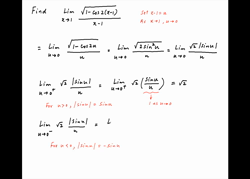 Find lim x→1 √(1-cos2(x-1)) / (x-1)
Let x-1=u
As x→1, u→0
= lim u→0 √(1-cos2u) / u = lim u→0 √(2sin²u) / u = lim u→0 √2 |sinu| / u
lim u→0⁺ √2 |sinu| / u = lim u→0⁺ √2 (sinu / u) = √2
For u>0, |sinu| = sinu
1 as u→0
lim u→0⁻ √2 |sinu| / u = l
For u<0, |sinu| = -sinu